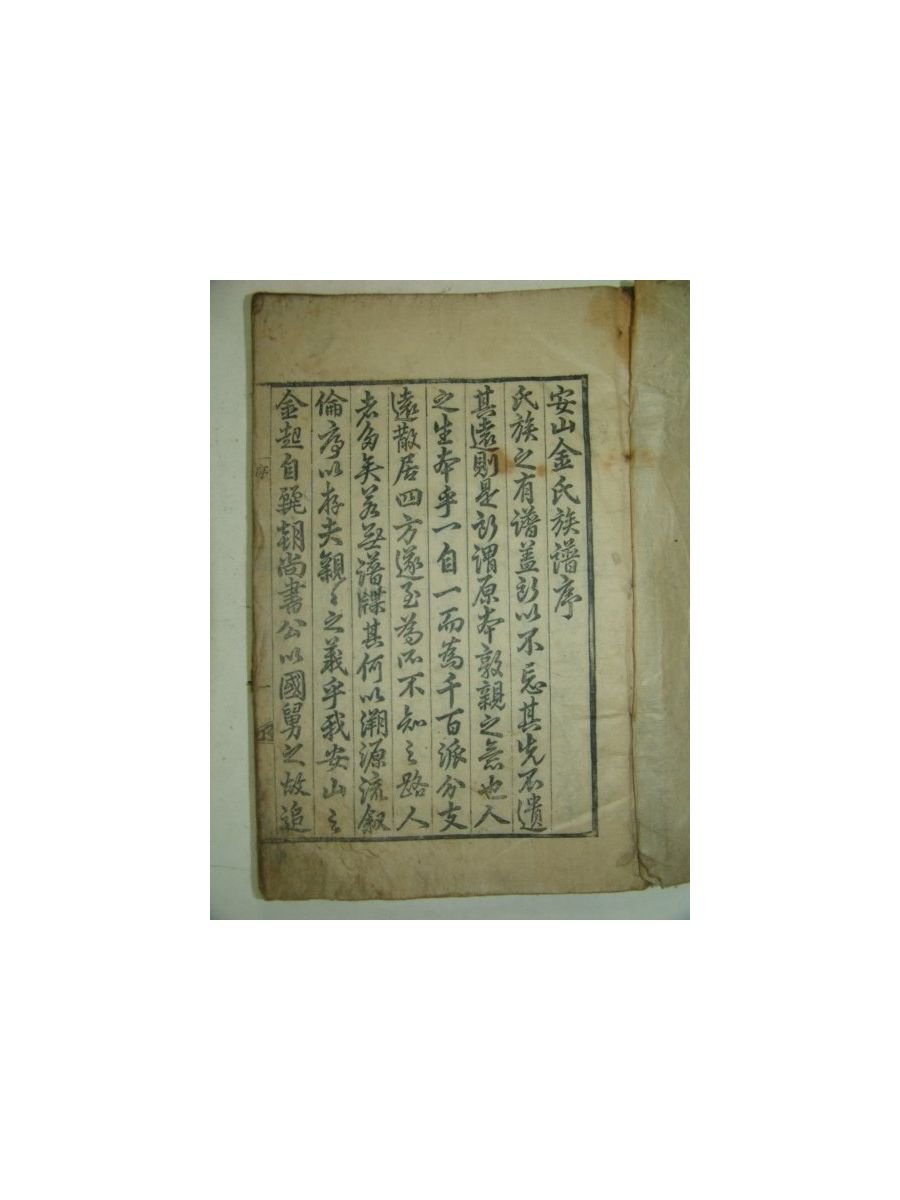 安山金氏族譜序
氏族之有譜盖所以不忘其先不遺
其遠則是所謂原本敦親之意也人
之生本乎一自一而爲千百派分支
遠散居四方遂至爲不知之路人
者多矣若無譜牒其何以溯源流叙
倫序以存夫親〻之義乎我安山之
金起自麗朝尚書公以國舅之故追
序
一